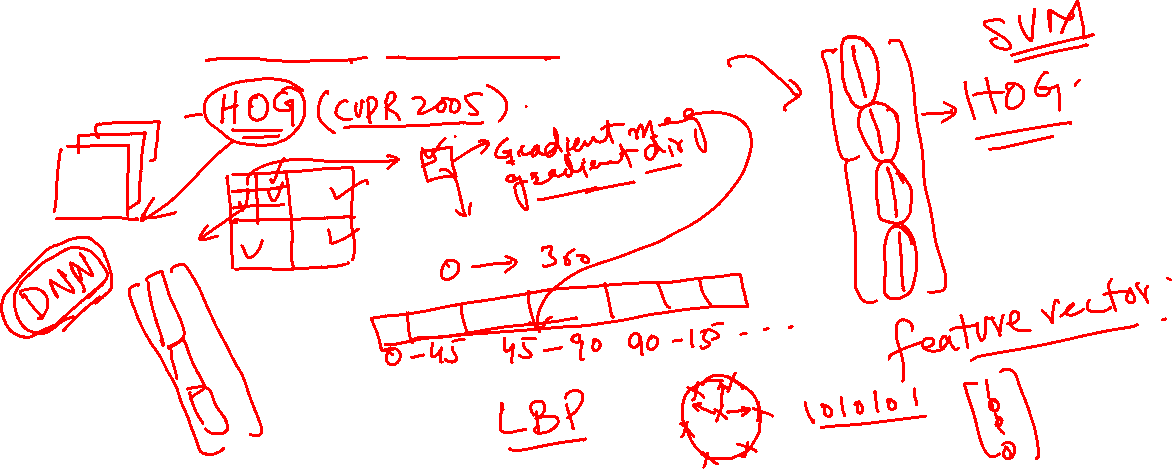 SVM
HOG (CVPR 2005).
HOG.
Gradient mag
gradient dir
DNN
0 → 360
0-45 45-90 90-135 ....
feature vector.
LBP
1010101
1
0
0